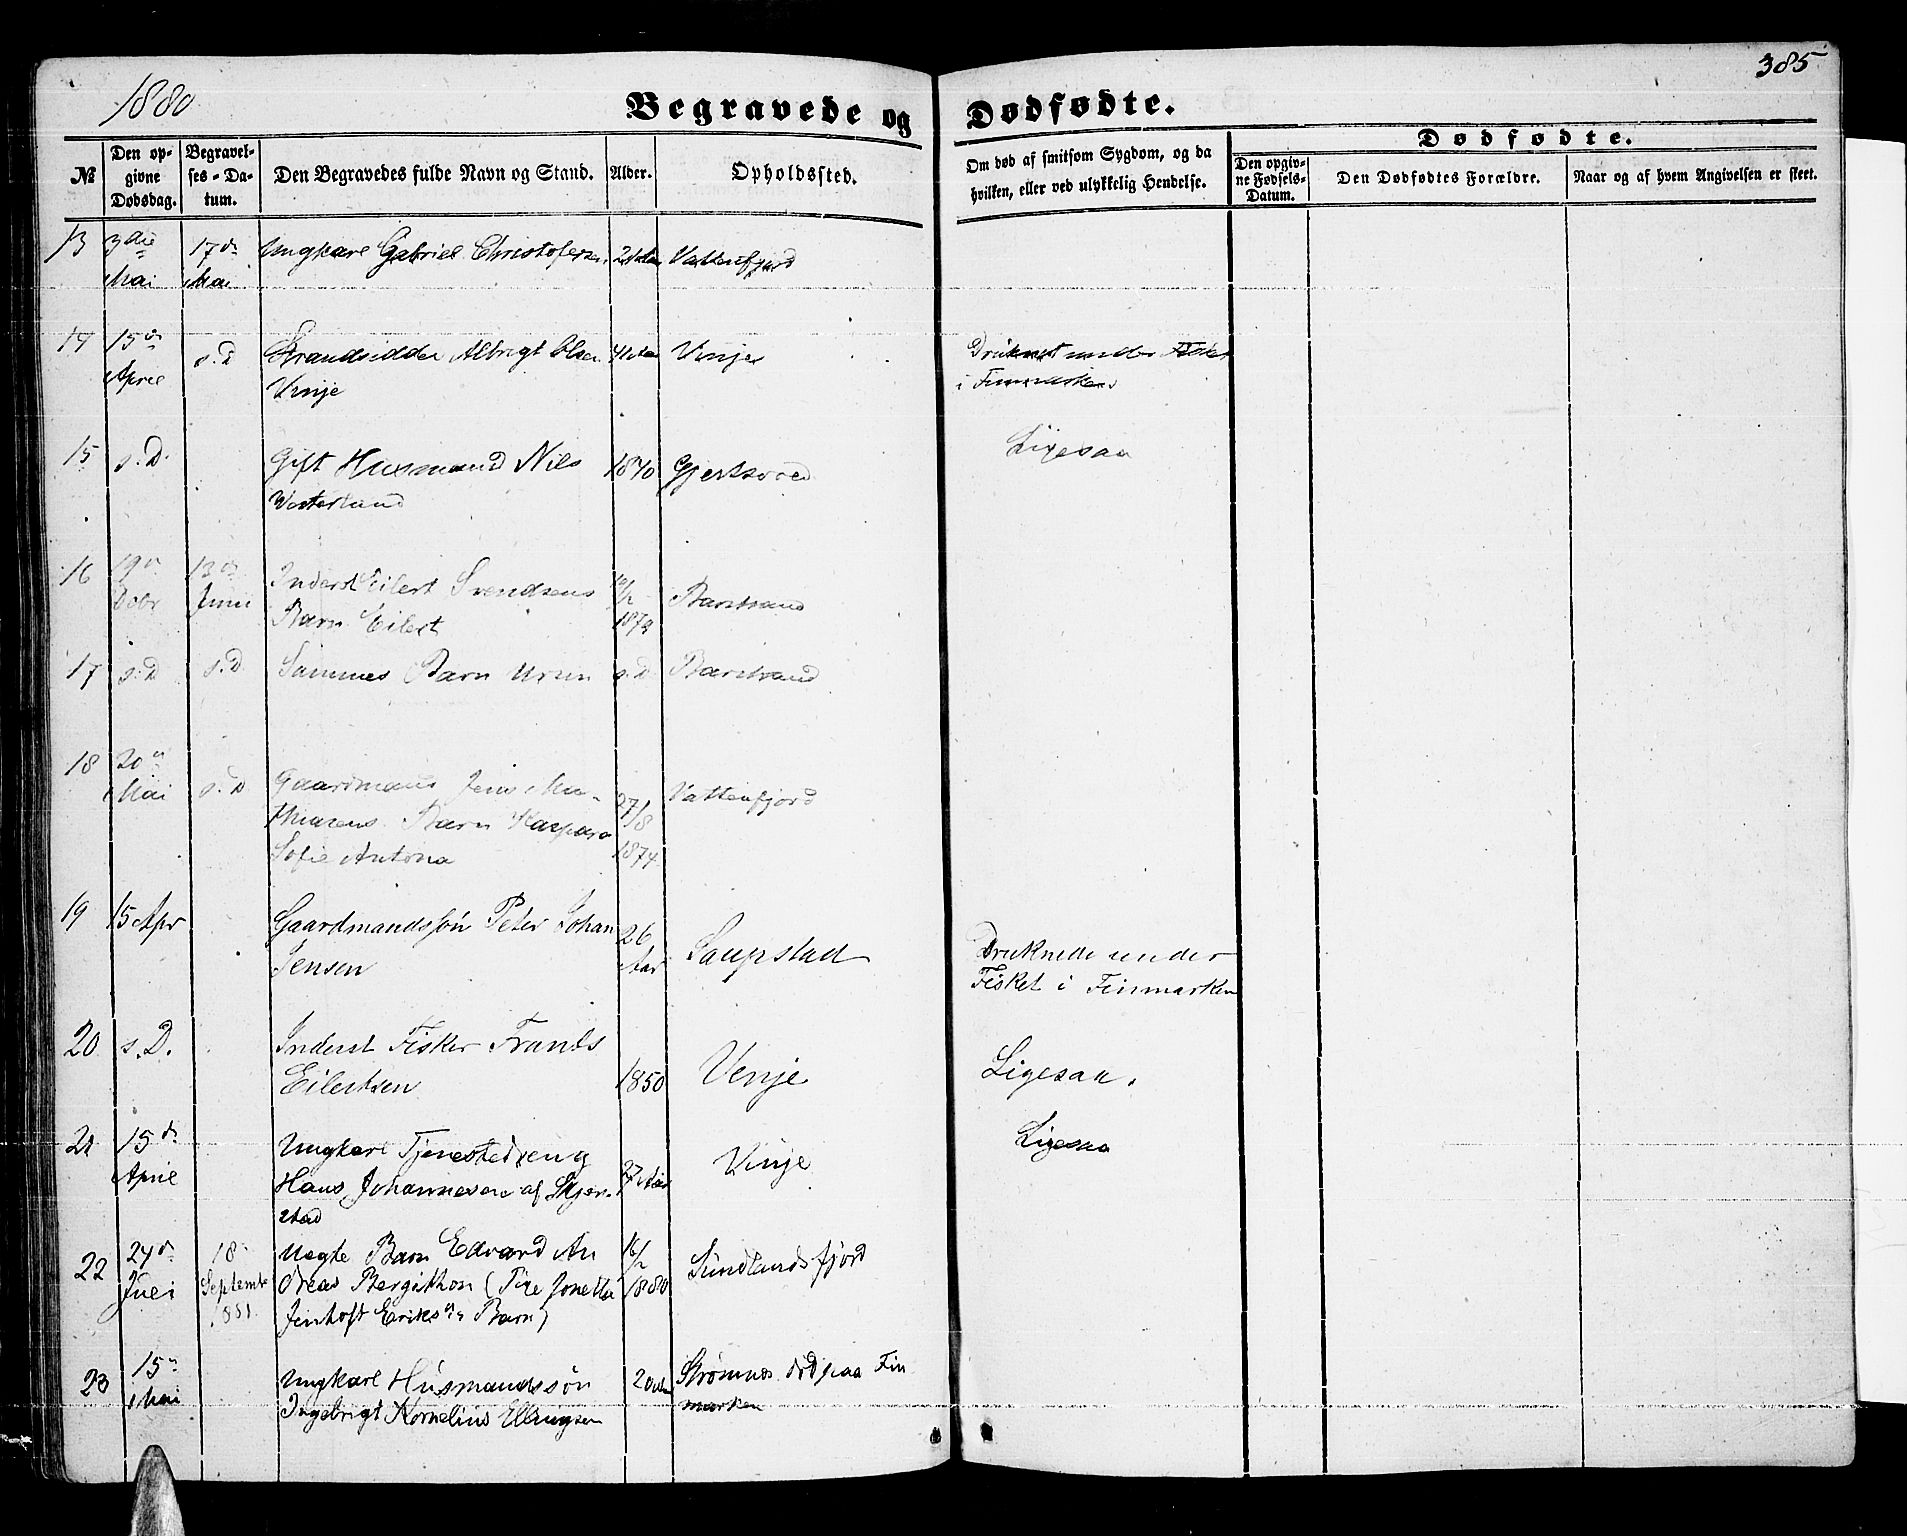 1880
385
Begravede og Dødfødte.
№
Den opgivne Dødsdag.
Begravelses-Datum.
Den Begravedes fulde Navn og Stand.
Alder.
Opholdssted.
Om død af smitsom Sygdom, og da hvilken, eller ved ulykkelig Hendelse.
Dødfødte.
Den opgivne Fødsels-Datum.
Den Dødfødtes Forældre.
Naar og af hvem Angivelsen er skeet.
13 3die 17de Ungkarl Gabriel Christofersen Vattenfjord
Mai Mai
14 15de s.D Strandsidder Albrigt Olsen Vinje Druknet under Fisket
April Vinje i Finmarken
15 s.D. Gift Husmand Nils 1840 Ligesaa
Vesterland
16 19de 13de Inderst Eilert Svendsens Barstrand
Juni Barn Eilert
17 s.D s.D Sammes Barn s.D Barstrand
18 20de
Mai s.D Gaardmand Jens Ma- 27/8 Vattenfjord
thiasens Barn Kaspara 1874
Sofie Antona
19 15 Apr Gaardmandssøn Peter Johan 26 Saupstad Druknede under
Jensen Aar Fisket i Finmarken
20 s.D. Inderst Fisker Frants
Eilertsen 1850 Venje Ligesaa.
21 15de Ungkarl Tjenestedreng Vinje Ligesaa
April Hans Johannesen af Skjer- 27 Aar
stad
22 24de 18 Uægte Barn Edvard An 16/2 Sundlandsfjord
Juli Septembr dreas Bergithon (Pige Jonetta 1880
1881. Jenhoft Eriksdr Barn)
23 15de Ungkarl Husmandssøn 20 Strømnes død paa Fin
Mai Ingebrigt Kornelius Ellingsen marken